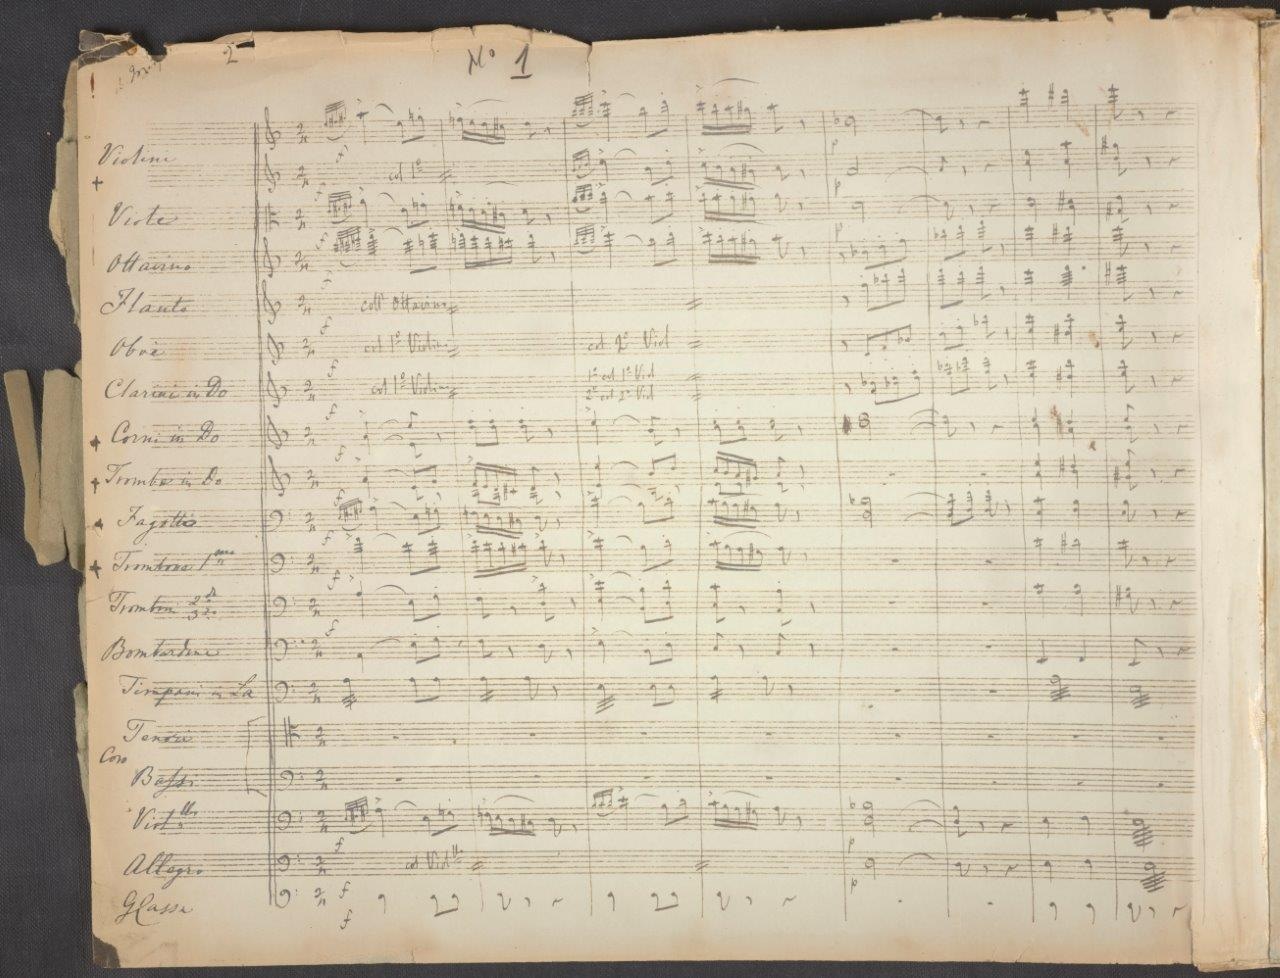 2
No 1
Violini
col 1o
Viole
Ottavino
Flauto
coll' Ottavino
Oboè
col 1o Violino
col 2o Viol
Clarini in Do
col 1o Violino
1o col 1o Viol
2o col 2o Viol
Corni in Do
Trombe in Do
Fagotti
Trombone 1mo
Tromboni 2do
3zo
Bombardone
Timpani in La
Tenori
Coro
Bassi
Viollli
Allegro
col Viollli
GCassa